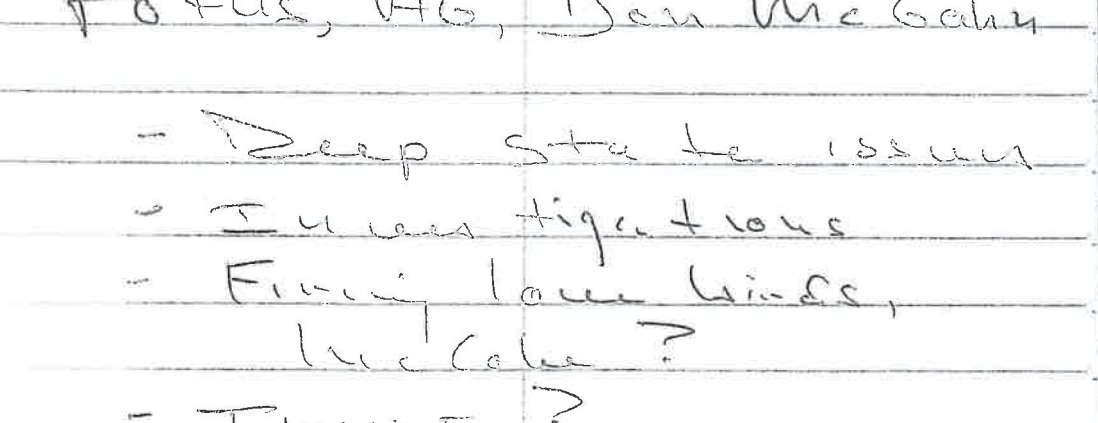 POTUS, AG, Don McGahn
- Deep state issues
- Investigations
- Firing love birds,
McCabe?